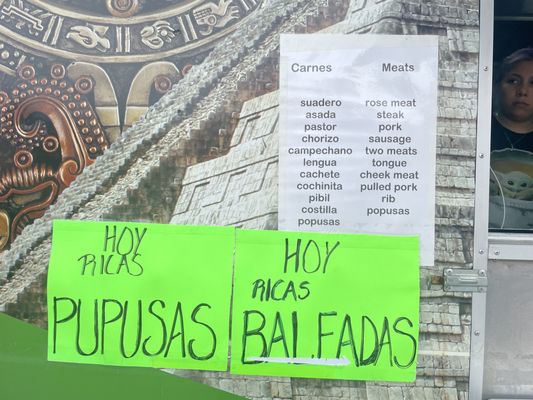 Carnes Meats
suadero rose meat
asada steak
pastor pork
chorizo sausage
campechano two meats
lengua tongue
cachete cheek meat
cochinita pulled pork
pibil rib
costilla pupusas
pupusas
HOY
RICAS
PUPUSAS
HOY
RICAS
BALFADAS